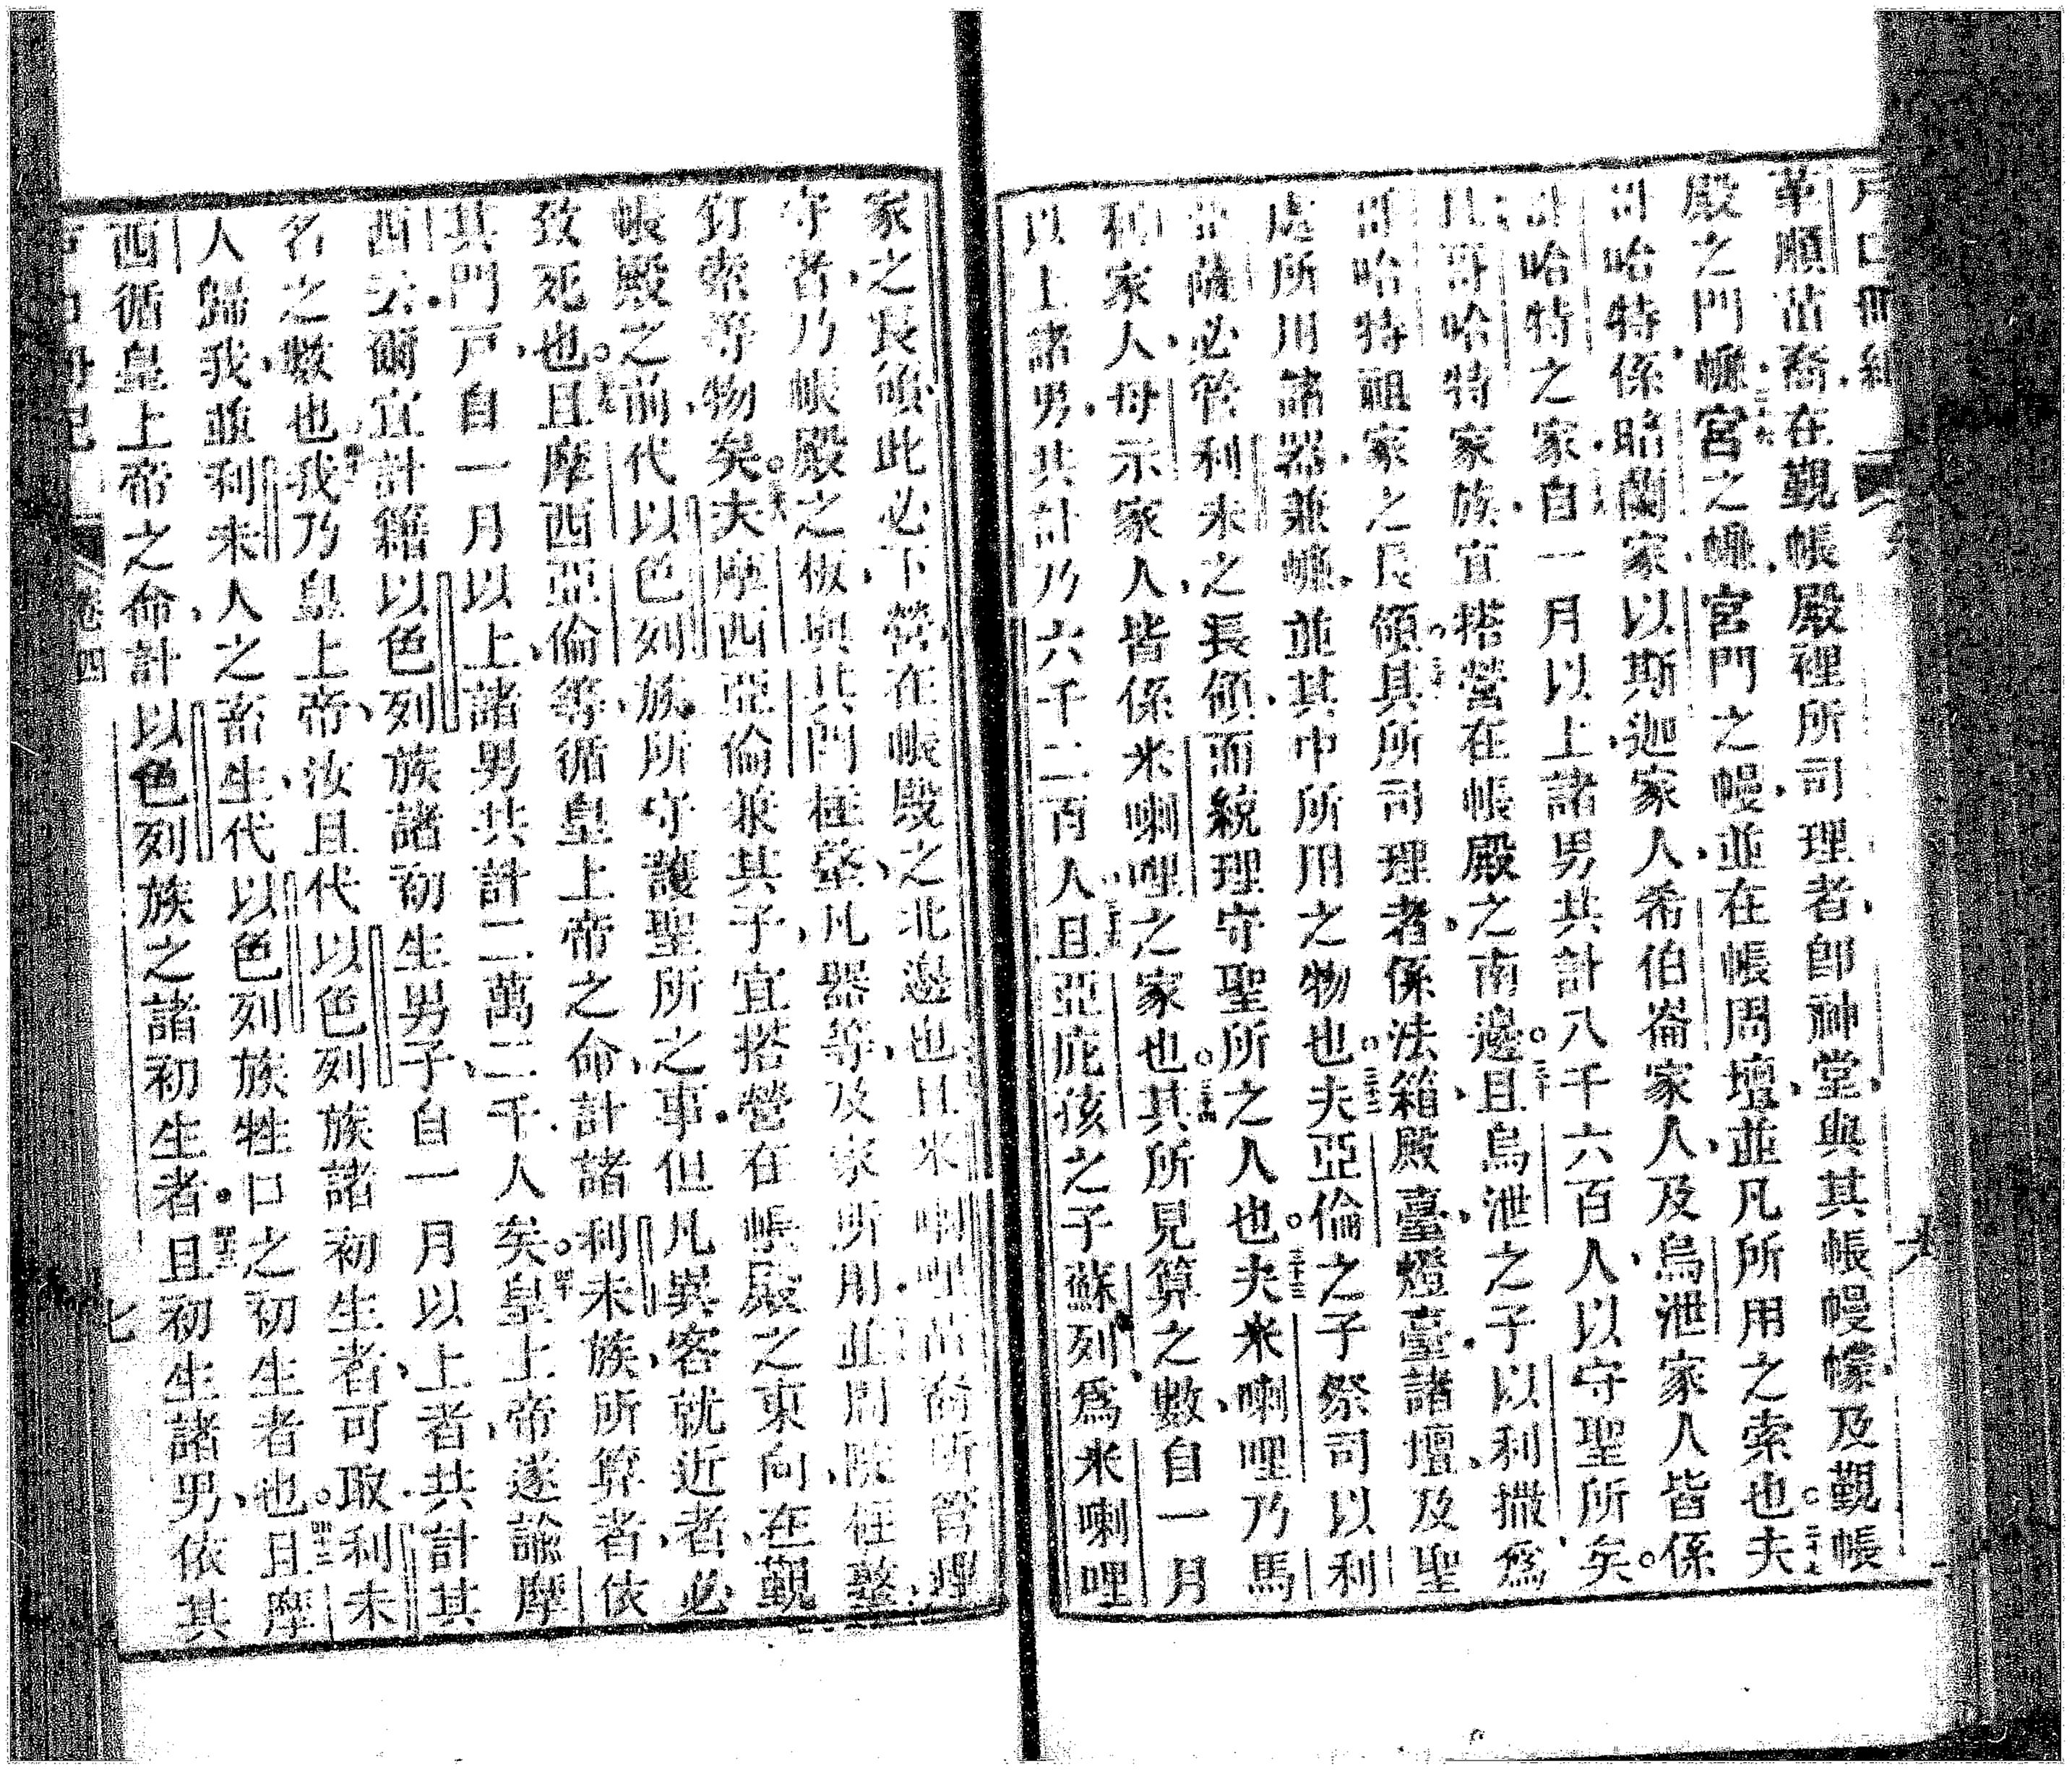 戶口冊紀
革順苗裔在覲帳殿裡所司理者卽神堂與其帳幔幪及覲帳
殿之門幪宮之幪宮門之幔並在帳周壇並凡所用之索也夫
哥哈特係暗蘭家以斯迦家人希伯崙家人及烏泄家人皆係
哥哈特之家自一月以上諸男共計八千六百人以守聖所矣
且哥哈特家族宜搭營在帳殿之南邊且烏泄之子以利撒爲
哥哈特祖家之長領其所司理者係法箱殿臺燈臺諸壇及聖
處所用諸器兼幪並其中所用之物也夫亞倫之子祭司以利
亞薩必管利未之長領而統理守聖所之人也夫米喇哩乃馬
利家人母示家人皆係米喇哩之家也其所見算之數自一月
以上諸男共計乃六千二百人且亞庇孩之子蘇列爲米喇哩
家之長領此必下營在帳殿之北邊也且米喇哩苗裔所管理
守者乃帳殿之板與其閂柱壑凡器等及家所用並周院柱鑿
釘索等物矣夫摩西亞倫兼其子宜搭營在帳殿之東向在覲
帳殿之前代以色列族所守護聖所之事但凡異客就近者必
致死也且摩西亞倫等循皇上帝之命計諸利未族所算者依
其門戶自一月以上諸男共計二萬二千人矣皇上帝遂諭摩
西云爾宜計籍以色列族諸初生男子自一月以上者共計其
名之數也我乃皇上帝汝且代以色列族諸初生者可取利未
人歸我並利未人之畜生代以色列族牲口之初生者也且摩
西循皇上帝之命計以色列族之諸初生者且初生諸男依其
卷四
七